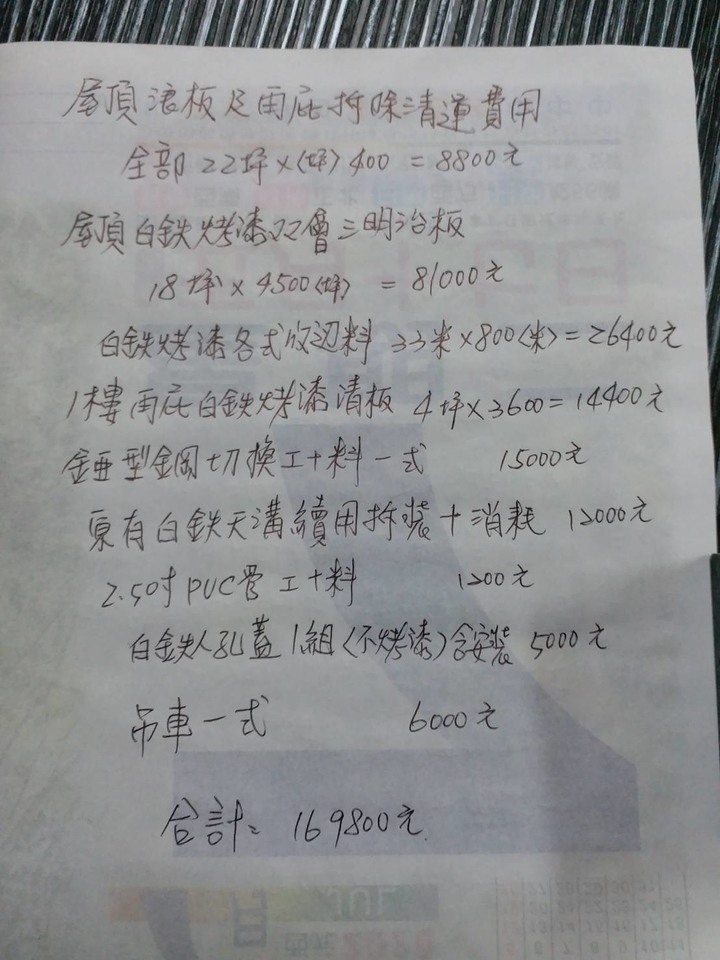 屋頂浪板及雨庇拆除清運費用
全部 22坪×(坪) 400 = 8800元
屋頂白鉄烤漆双層三明治板
18坪 × 4500(坪) = 81000元
白鉄烤漆各式收边料 33米×800(米)=26400元
1樓雨庇白鉄烤漆浪板 4坪×3600=14400元
鋼切換工+料一式 15000元
原有白鉄天溝續用拆裝+消耗 12000元
2.5吋PVC管工+料 1200元
白鉄人孔蓋1組(不烤漆)含安裝 5000元
吊車一式 6000元
合計= 169800元